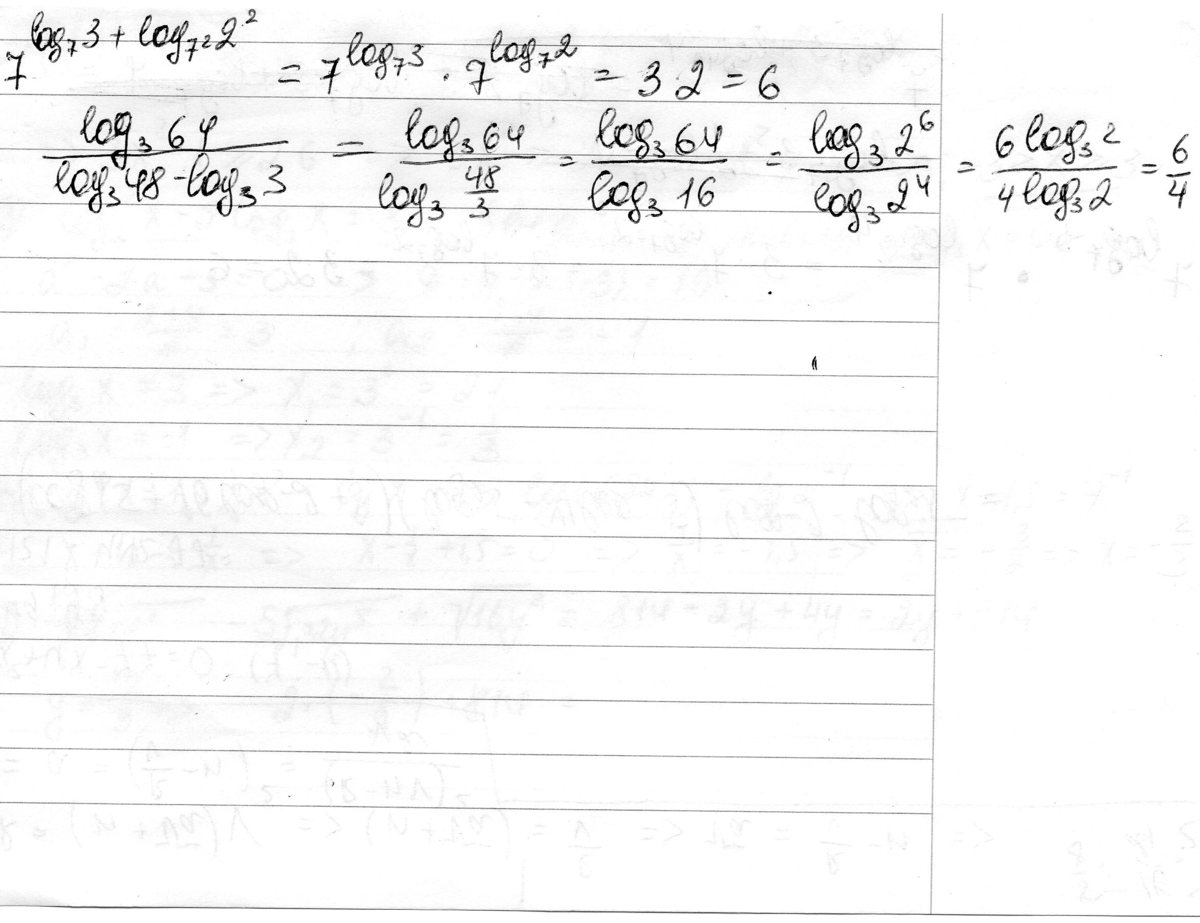 7^{log_7 3 + log_{7^2} 2^2} = 7^{log_7 3} · 7^{log_7 2} = 3·2 = 6
\frac{log_3 64}{log_3 48 - log_3 3} = \frac{log_3 64}{log_3 \frac{48}{3}} = \frac{log_3 64}{log_3 16} = \frac{log_3 2^6}{log_3 2^4} = \frac{6 log_3 2}{4 log_3 2} = \frac{6}{4}